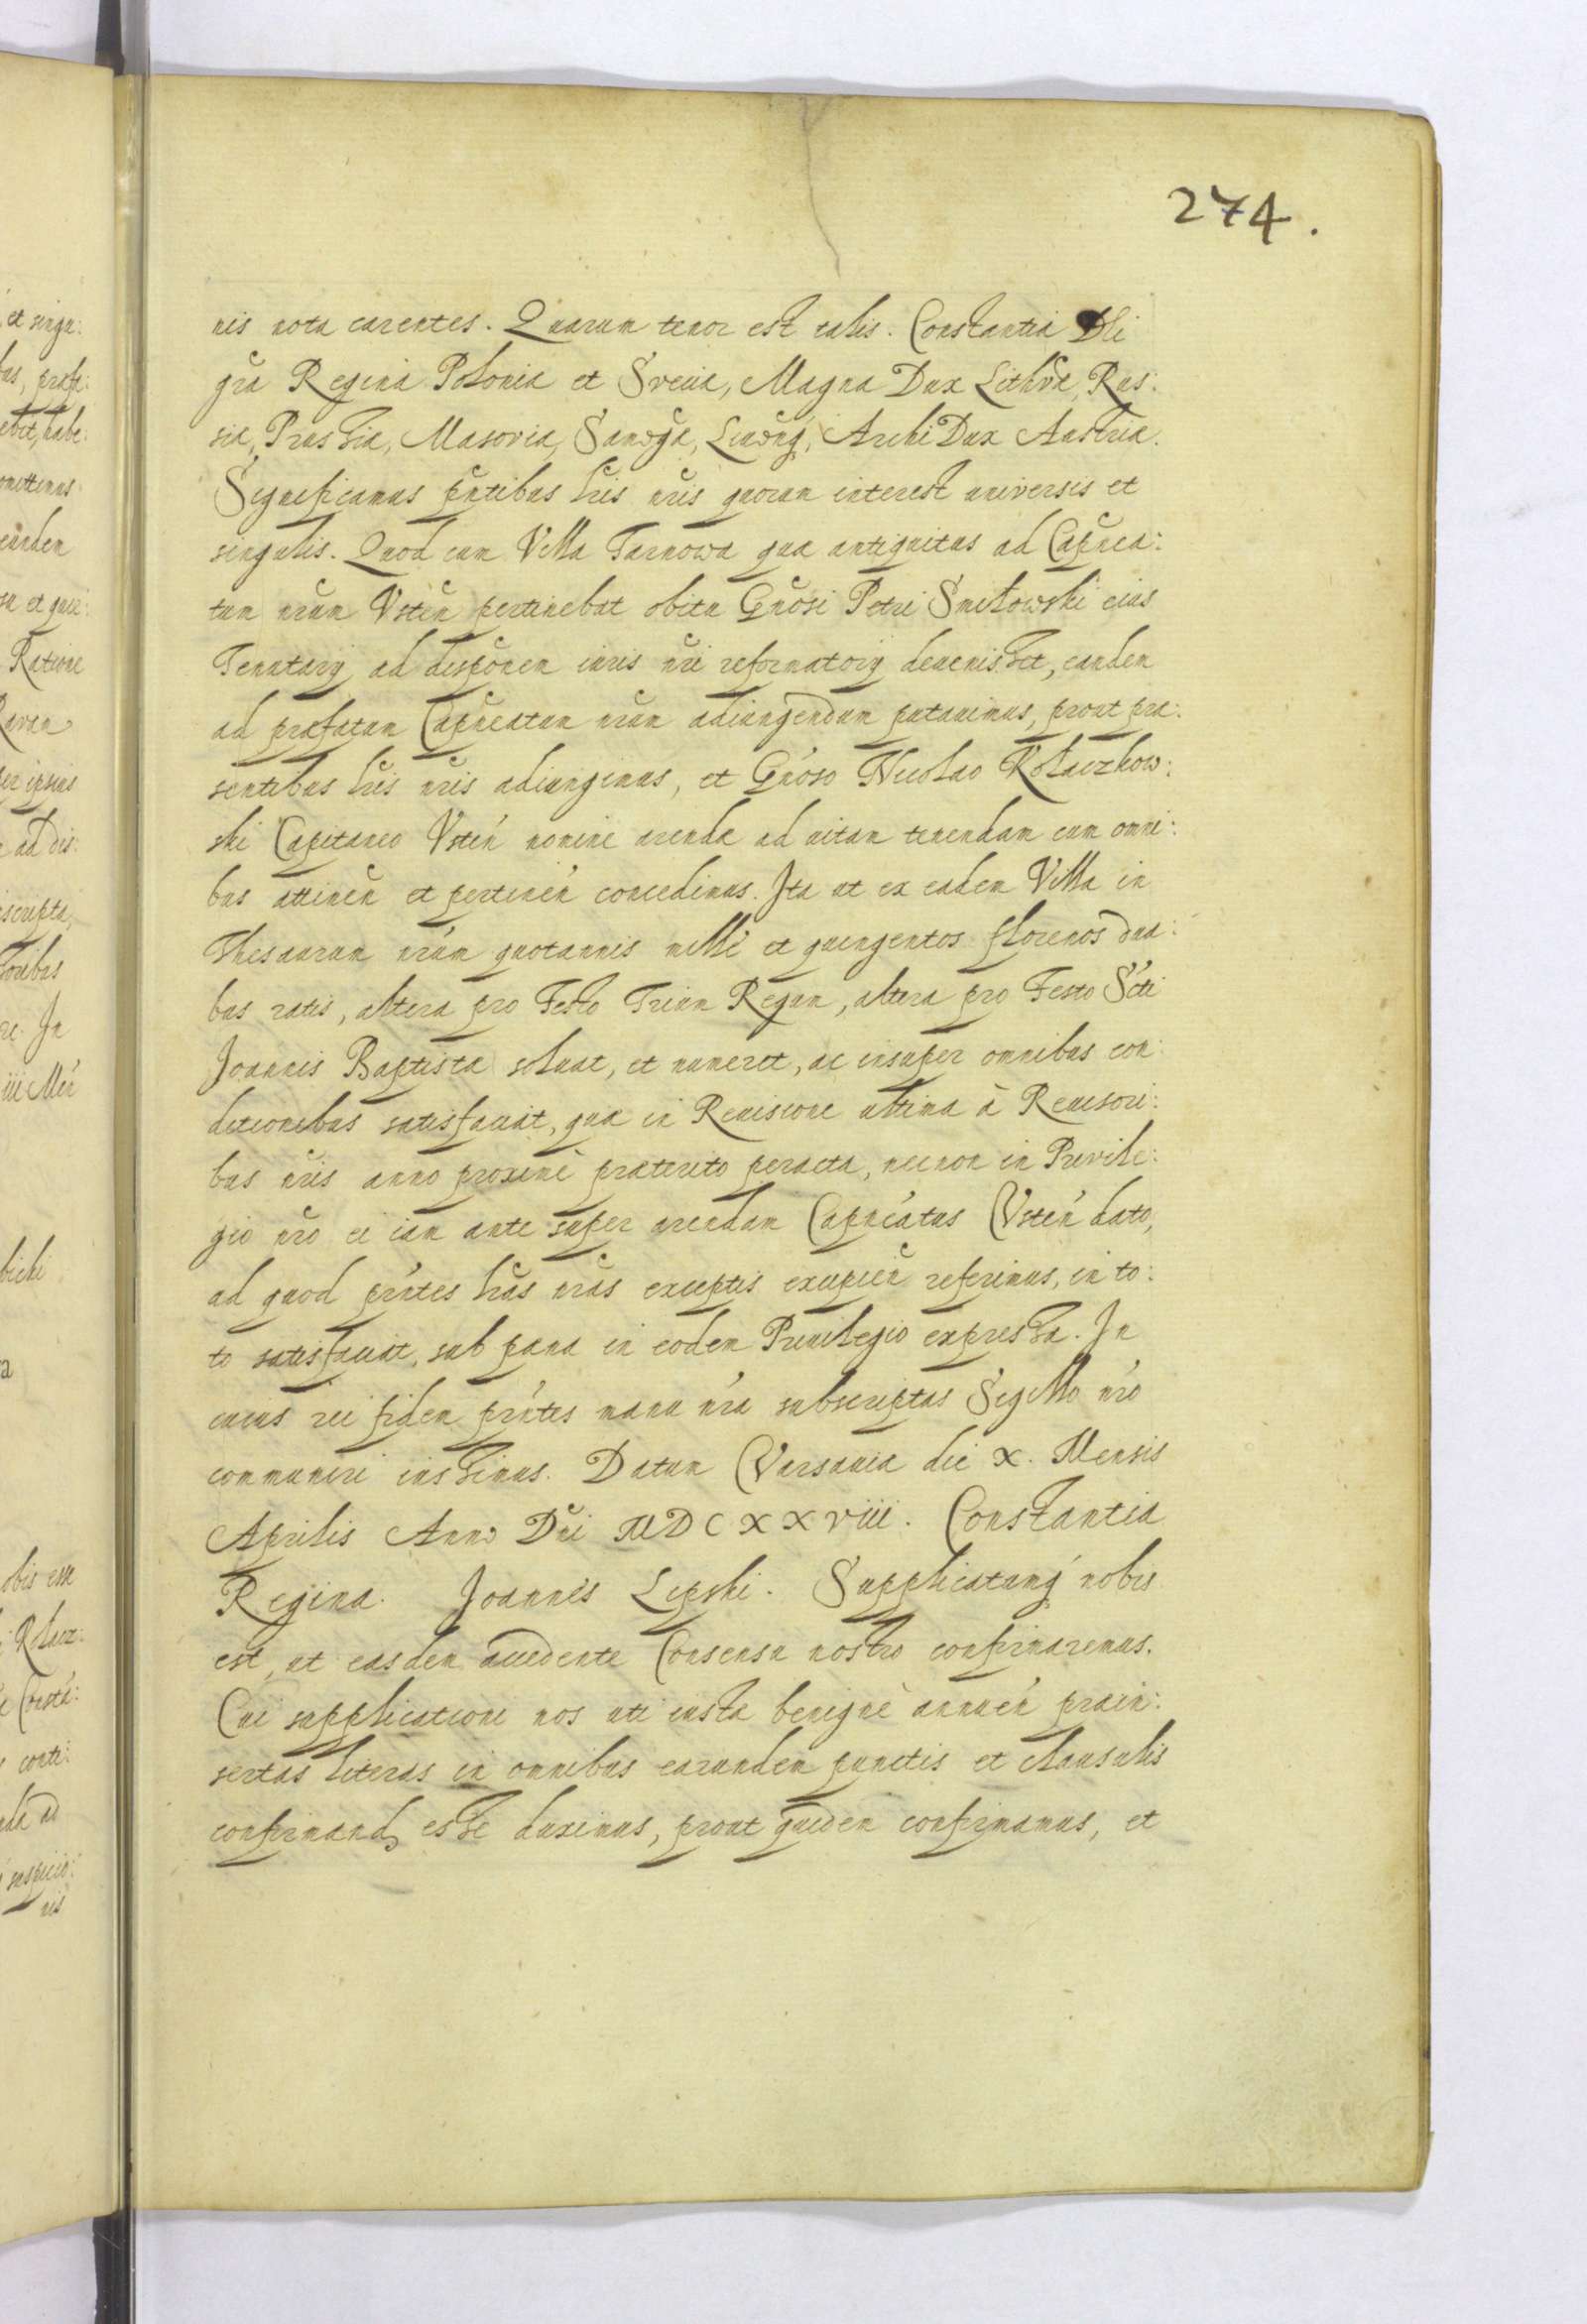 274.
nis nota carentes. Quarum tenor est talis. Constantia Dei
gra Regina Poloniæ et Sveciæ, Magna Dux Lithvæ, Rus:
siæ, Prussiæ, Masoviæ, Samogæ, Livonq, ArchiDux Austriæ.
Significamus pntibus lris nris quorum interest universis et
singulis. Quod cum Villa Tarnowa quæ antiquitus ad Capnea:
tum nrum Vsten pertinebat obitu Gnosi Petri Smilowski eius
Tenutarij ad disponem iuris nri reformatorij deuenisset, eandem
ad præfatum Capneatum nrum adiungendam putauimus, prout præ:
sentibus lris nris adiungimus, et Gnoso Nicolao Kołaczkow:
ski Capitaneo Vsten nomine arendæ ad uitam tenendam cum omni:
bus attinen et pertinen concedimus. Ita ut ex eadem Villa in
Thesaurum nrum quotannis mille et quingentos florenos dua:
bus ratis, altera pro Festo Trium Regum, altera pro Festo Scti
Joannis Baptistæ soluat, et numeret, ac insuper omnibus con:
ditionibus satisfaciat, quæ in Reuisione ultima à Reuisori:
bus nris anno proximè præterito peracta, necnon in Privile:
gio nro ei iam ante super arendam Capneatus Vsten dato,
ad quod pntes lras nras exceptis excipien referimus, in to:
to satisfaciat, sub pæna in eodem Priuilegio expressa. In
cuius rei fidem pntes manu nra subscriptas Sigillo nro
communiri iussimus. Datum Varsauiæ die X. Mensis
Aprilis Anno Dni MDCXXVIII. Constantia
Regina. Joannes Lipski. Supplicatumq nobis
est, ut easdem accedente Consensu nostro confirmaremus.
Cui supplicationi nos uti iustæ benignè annuen præin:
sertas literas in omnibus earundem punctis et clausulis
confirmand esse duximus, prout quidem confirmamus, et